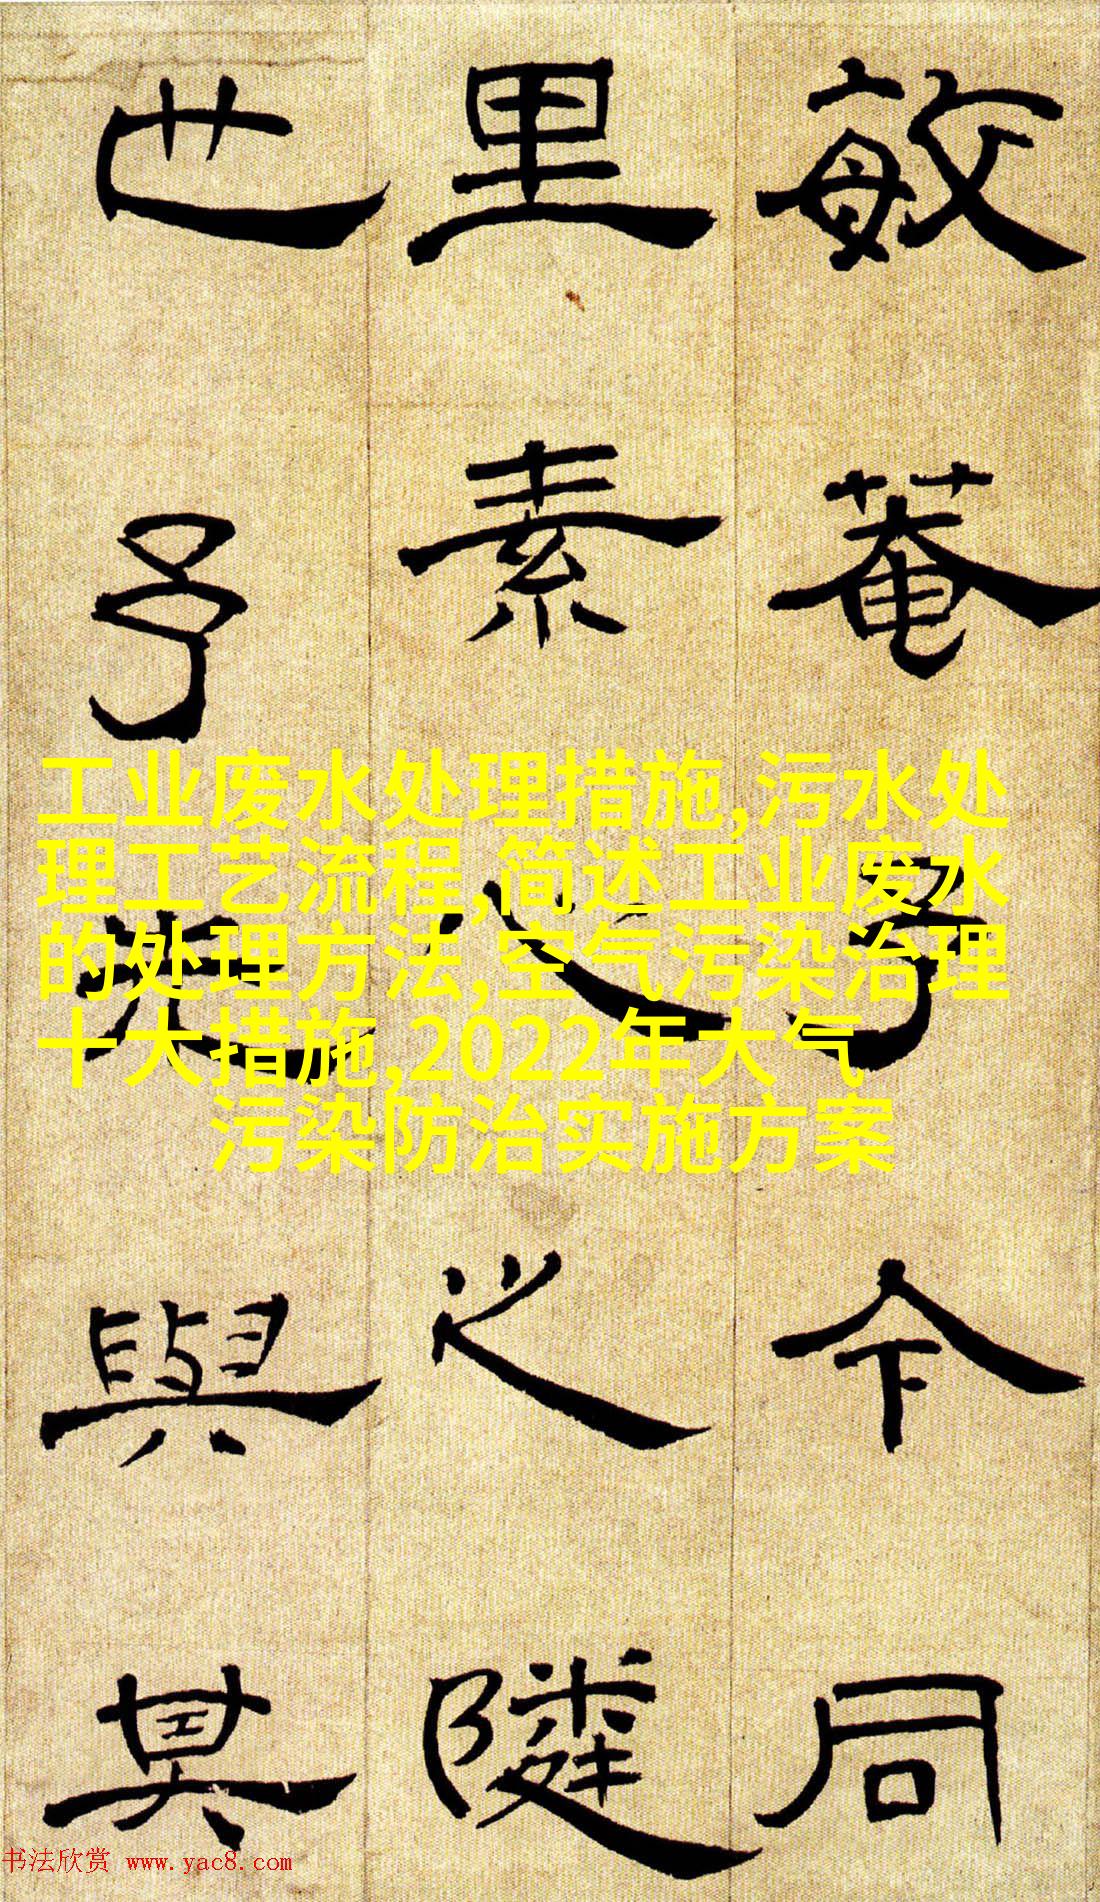 敏菴子今同
里素心之隱
也予與其
工业废水处理措施,污水处
理工艺流程,简述工业废水
的处理方法,空气污染治理
十大措施,2022年大气
污染防治实施方案
书法欣赏 www.yac8.com